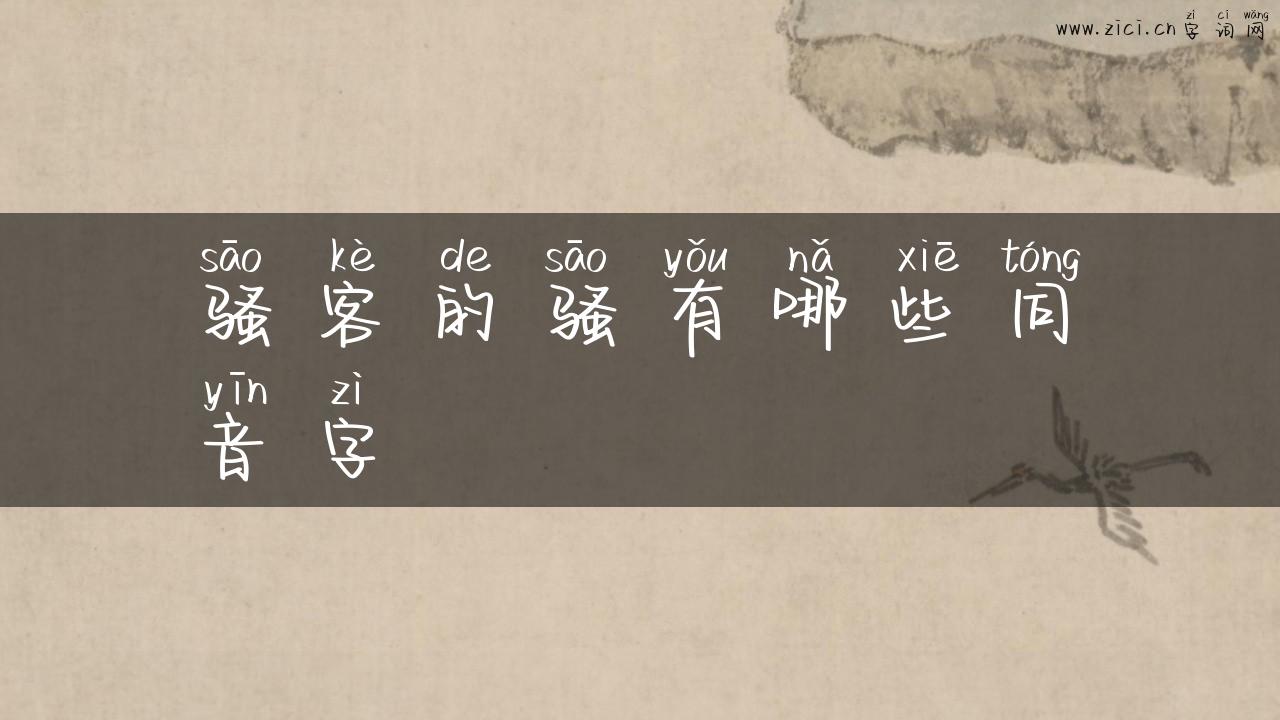 zì cí wǎng
www.zici.cn字词网
sāo kè de sāo yǒu nǎ xiē tóng
骚客的骚有哪些同
yīn zì
音字